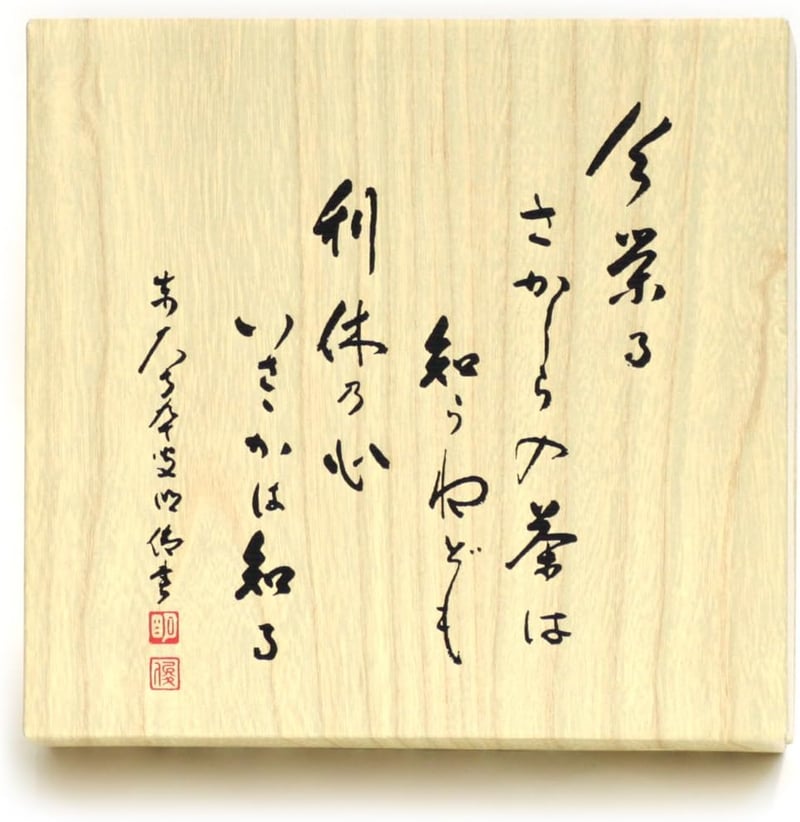 今栄る
さかしらの茶は
知らねども
利休乃心
いさゝかは知る